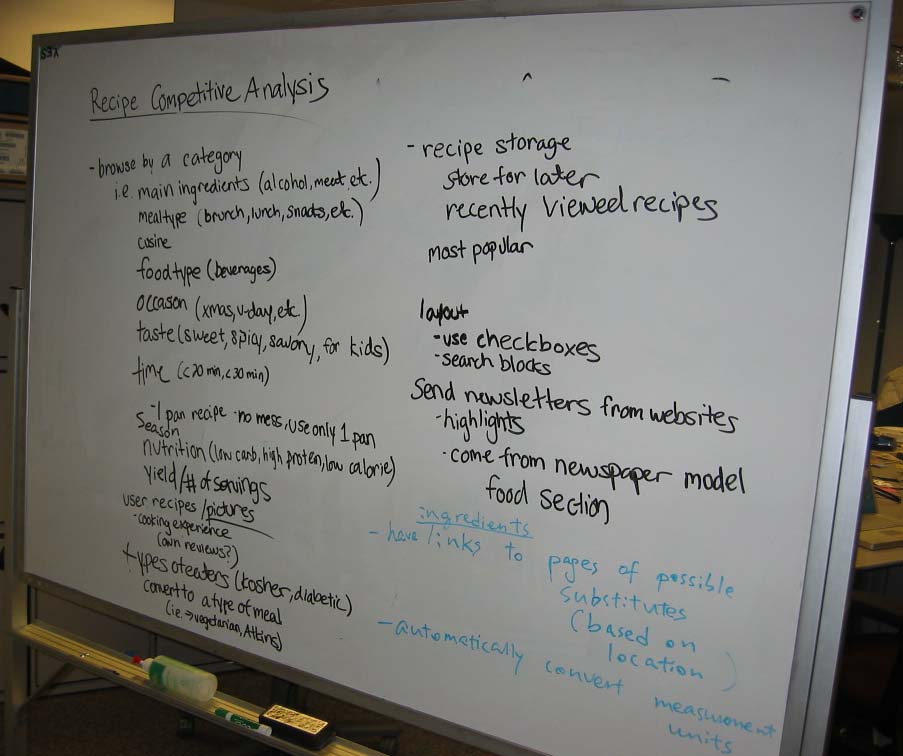 Recipe Competitive Analysis
- browse by a category
i.e. main ingredients (alcohol, meat, etc.)
mealtype (brunch, lunch, snacks, etc.)
cusine
foodtype (beverages)
occason (xmas, v-day, etc.)
taste (sweet, spicy, savory, for kids)
time (<20 min, <30 min)
- 1 pan recipe - no mess, use only 1 pan
season
nutrition (low carb, high protein, low calorie)
yield/# of servings
user recipes / pictures
- cooking experience
(own reviews?)
types of eaters (kosher, diabetic)
convert to a type of meal
(ie. → vegetarian, Atkins)
- recipe storage
store for later
recently viewed recipes
most popular
layout
- use checkboxes
- search blocks
Send newsletters from websites
- highlights
- come from newspaper model
food section
ingredients
- have links to pages of possible
substitutes
(based on
location)
- automatically convert measurement
units